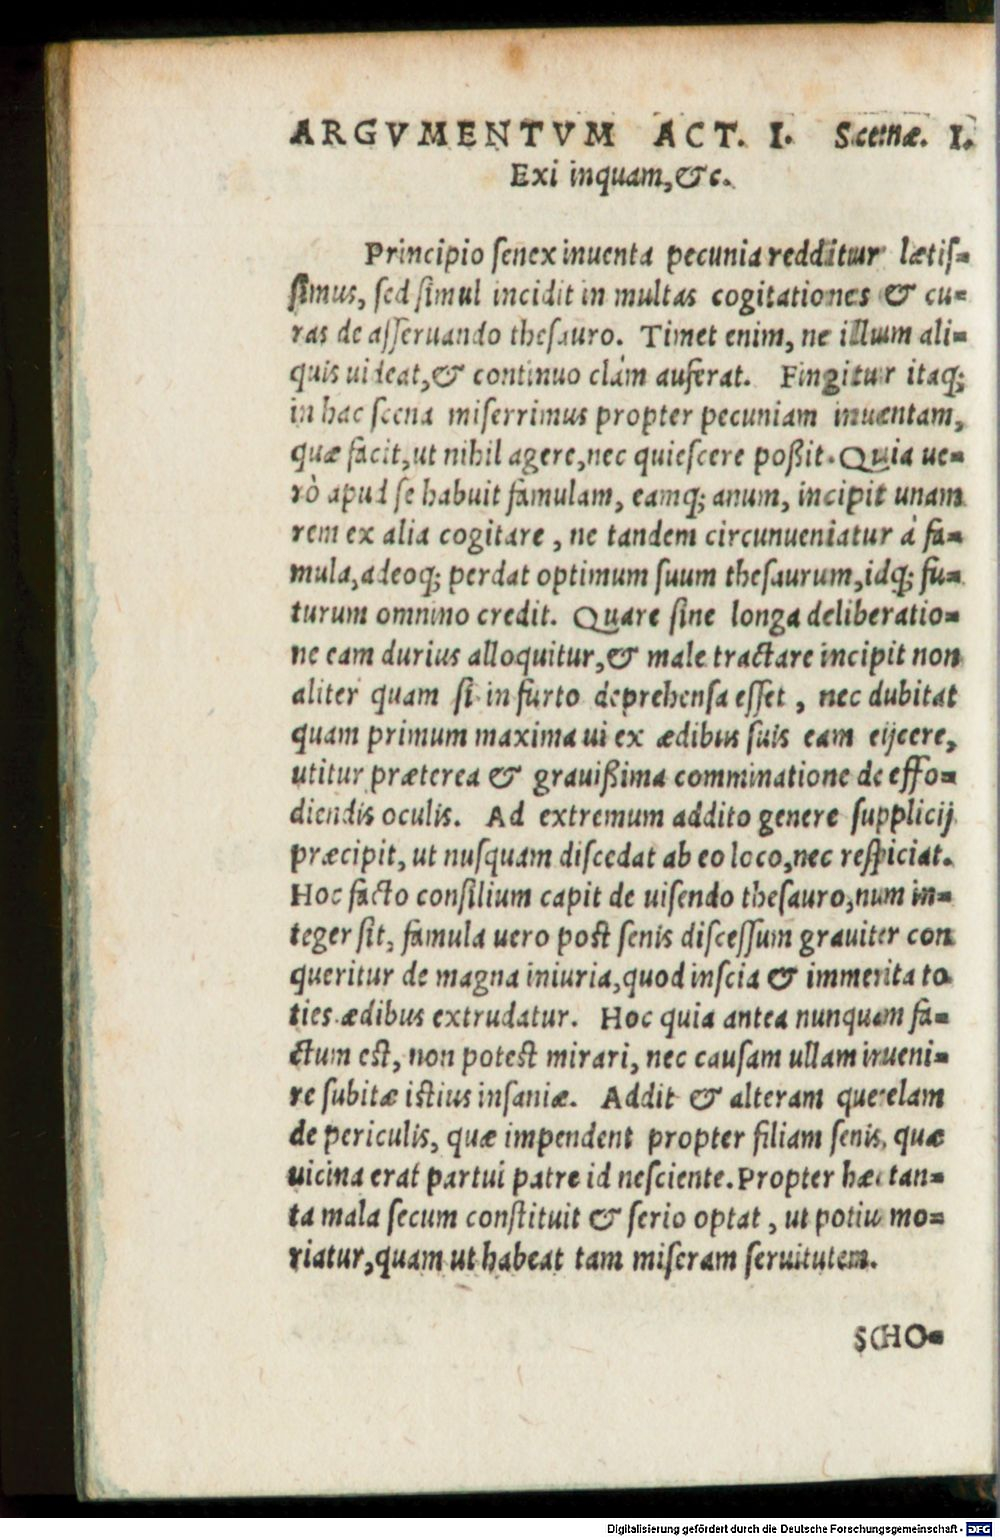 ARGVMENTVM ACT. I. Scenæ. I.
Exi inquam, & c.
Principio ſenex inuenta pecunia redditur lætiſ=
ſimus, ſed ſimul incidit in multas cogitationes & cu=
ras de aſſeruando theſauro. Timet enim, ne illum ali=
quis uideat, & continuo clàm auferat. Fingitur itaq;
in hac ſcena miſerrimus propter pecuniam inuentam,
quæ facit, ut nihil agere, nec quieſcere poßit. Quia ue=
rò apud ſe habuit famulam, eamq; anum, incipit unam
rem ex alia cogitare, ne tandem circunueniatur à fa=
mula, adeoq; perdat optimum ſuum theſaurum, idq; fu=
turum omnino credit. Quare ſine longa deliberatio=
ne eam durius alloquitur, & male tractare incipit non
aliter quam ſi in furto deprehenſa eſſet, nec dubitat
quam primum maxima ui ex ædibus ſuis eam eijcere,
utitur præterea & grauißima comminatione de effo=
diendis oculis. Ad extremum addito genere ſupplicij
præcipit, ut nuſquam diſcedat ab eo loco, nec reſpiciat.
Hoc facto conſilium capit de uiſendo theſauro, num in=
teger ſit, famula uero poſt ſenis diſceſſum grauiter con
queritur de magna iniuria, quod inſcia & immerita to
ties ædibus extrudatur. Hoc quia antea nunquam fa=
ctum eſt, non poteſt mirari, nec cauſam ullam inueni=
re ſubitæ iſtius inſaniæ. Addit & alteram querelam
de periculis, quæ impendent propter filiam ſenis, quæ
uicina erat partui patre id neſciente. Propter hæc tan=
ta mala ſecum conſtituit & ſerio optat, ut potius mo=
riatur, quam ut habeat tam miſeram ſeruitutem.
SCHO=
Digitalisierung gefördert durch die Deutsche Forschungsgemeinschaft - DFG